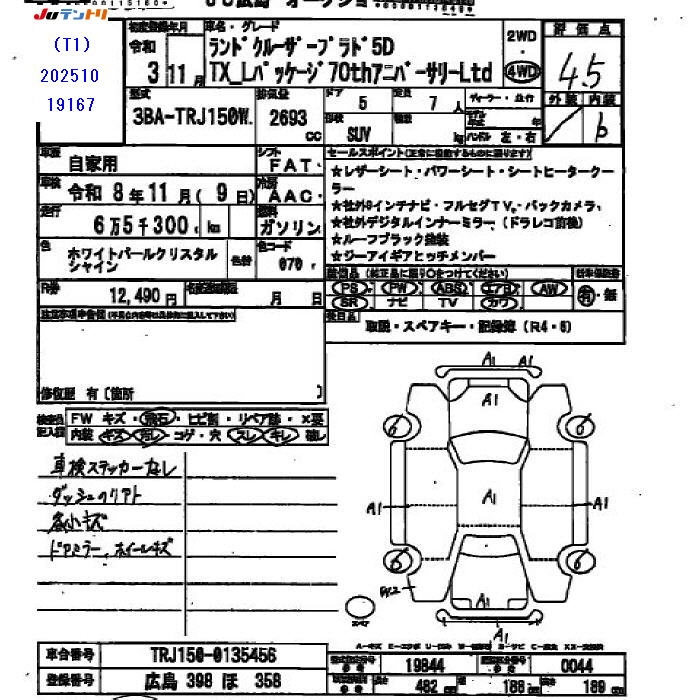 Juテントリ
(T1)
202510
19167
初度登録年月
車名・グレード
評価点
令和
3 11月
ランドクルーザープラド5D
TX_Lパッケージ70thアニバーサリーLtd
2WD
4WD
4.5
型式
3BA-TRJ150W
排気量
2693
cc
ドア
5
定員
7 人
形状
SUV
ハンドル 左・右
外装 内装
b
車歴
自家用
シフト
FAT
車検
令和 8年11月(9日)
冷房
AAC
走行
6万5千300 km
燃料
ガソリン
色
ホワイトパールクリスタル
シャイン
色替
色コード
070
R券
12,490 円
月 日
セールスポイント
★レザーシート・パワーシート・シートヒータークー
ラー
★社外9インチナビ・フルセグTV、バックカメラ、
★社外デジタルインナーミラー(ドラレコ前後)
★ルーフブラック塗装
★ジーアイギアヒッチメンバー
装備品(純正品に限り○をつけてください)
PS PW ABS エアB AW
SR ナビ TV カワ
有・無
後日品
取説・スペアキー・記録簿(R4・6)
修復歴 有〔箇所 〕
検査員
記入欄
FW キズ・飛石・ヒビ割・リペア跡・×要
内装 キズ・汚れ・コゲ・穴 スレ・キレ 破レ
車検ステッカーなし
各小キズ
ドアミラー、ホイールキズ
A1 A1
A1
6 6
A1 A1 A1
6 6
A1
A1
車台番号
TRJ150-0135456
登録番号
広島 398 ほ 358
19844
0044
長さ 482 cm 幅 188 cm 高さ 189 cm